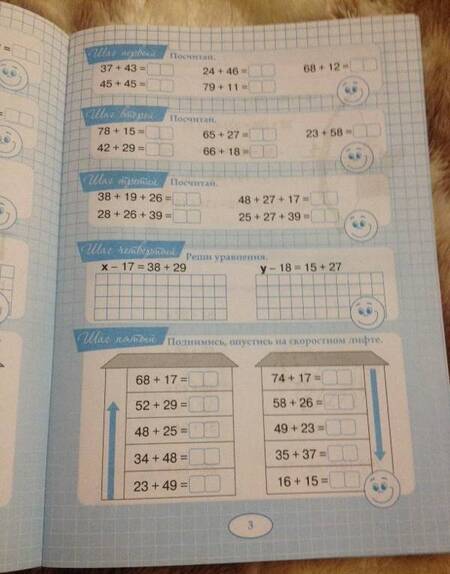 Шаг первый Посчитай.
37 + 43 = 24 + 46 = 68 + 12 =
45 + 45 = 79 + 11 =
Шаг второй Посчитай.
78 + 15 = 65 + 27 = 23 + 58 =
42 + 29 = 66 + 18 =
Шаг третий Посчитай.
38 + 19 + 26 = 48 + 27 + 17 =
28 + 26 + 39 = 25 + 27 + 39 =
Шаг четвертый Реши уравнения.
x – 17 = 38 + 29 y – 18 = 15 + 27
Шаг пятый Поднимись, опустись на скоростном лифте.
68 + 17 = 74 + 17 =
52 + 29 = 58 + 26 =
48 + 25 = 49 + 23 =
34 + 48 = 35 + 37 =
23 + 49 = 16 + 15 =
3